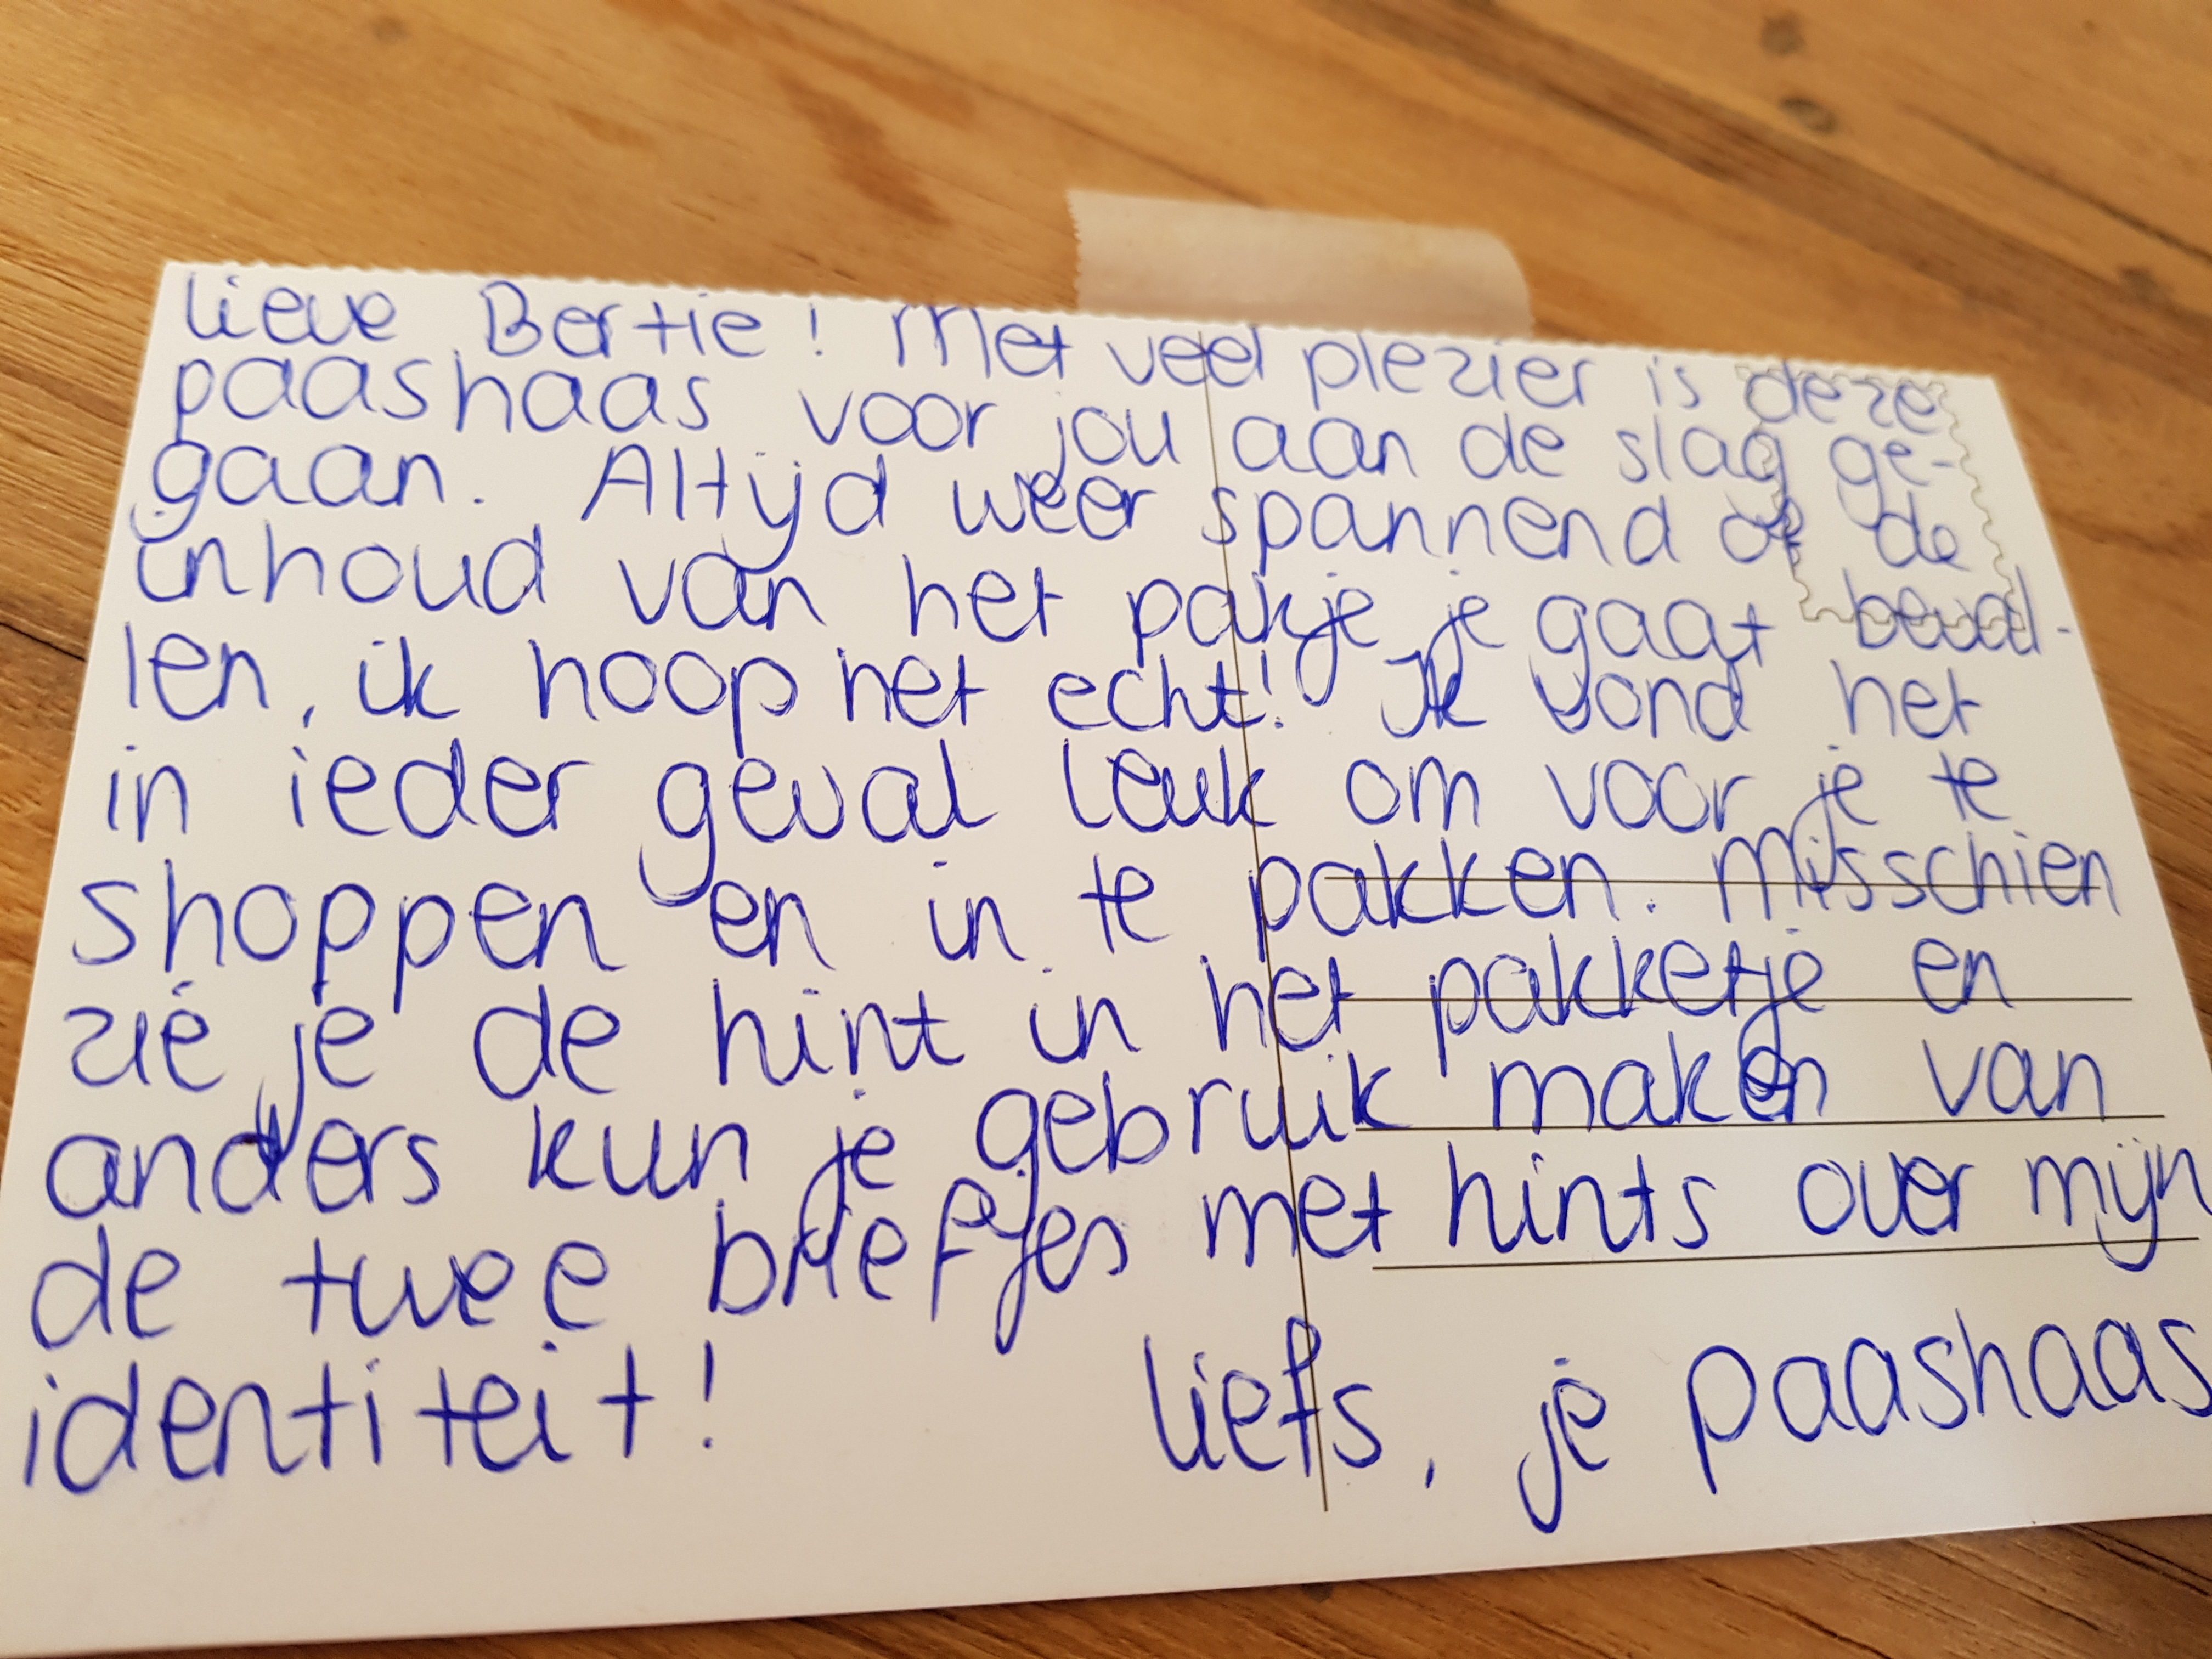 lieve Bertie! Met veel plezier is deze
paashaas voor jou aan de slag ge-
gaan. Altijd weer spannend of de
inhoud van het pakje je gaat beval-
len, ik hoop het echt! Ik vond het
in ieder geval leuk om voor je te
shoppen en in te pakken. Misschien
zie je de hint in het pakketje en
anders kun je gebruik maken van
de twee briefjes met hints over mijn
identiteit!
liefs, je paashaas